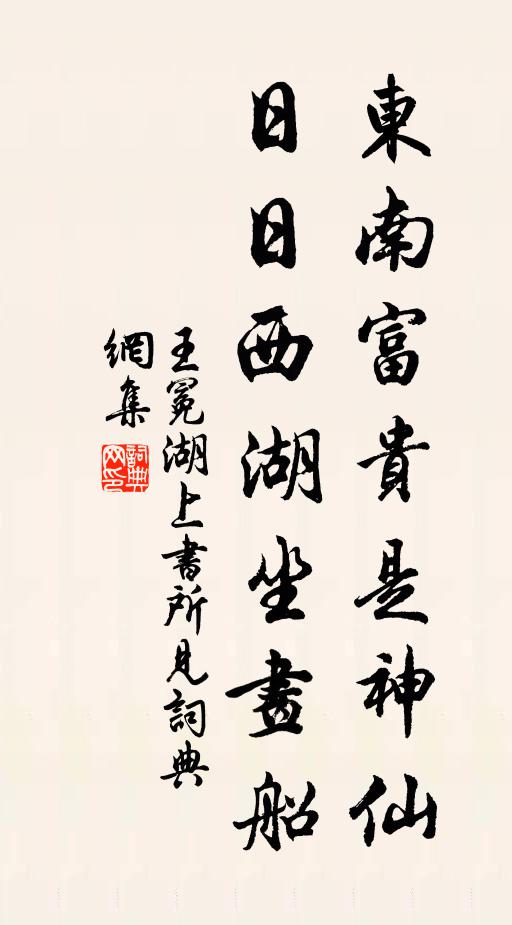 東南富貴是神仙
日日西湖坐畫船
王冕湖上書所見詞典
網集
詞典网印